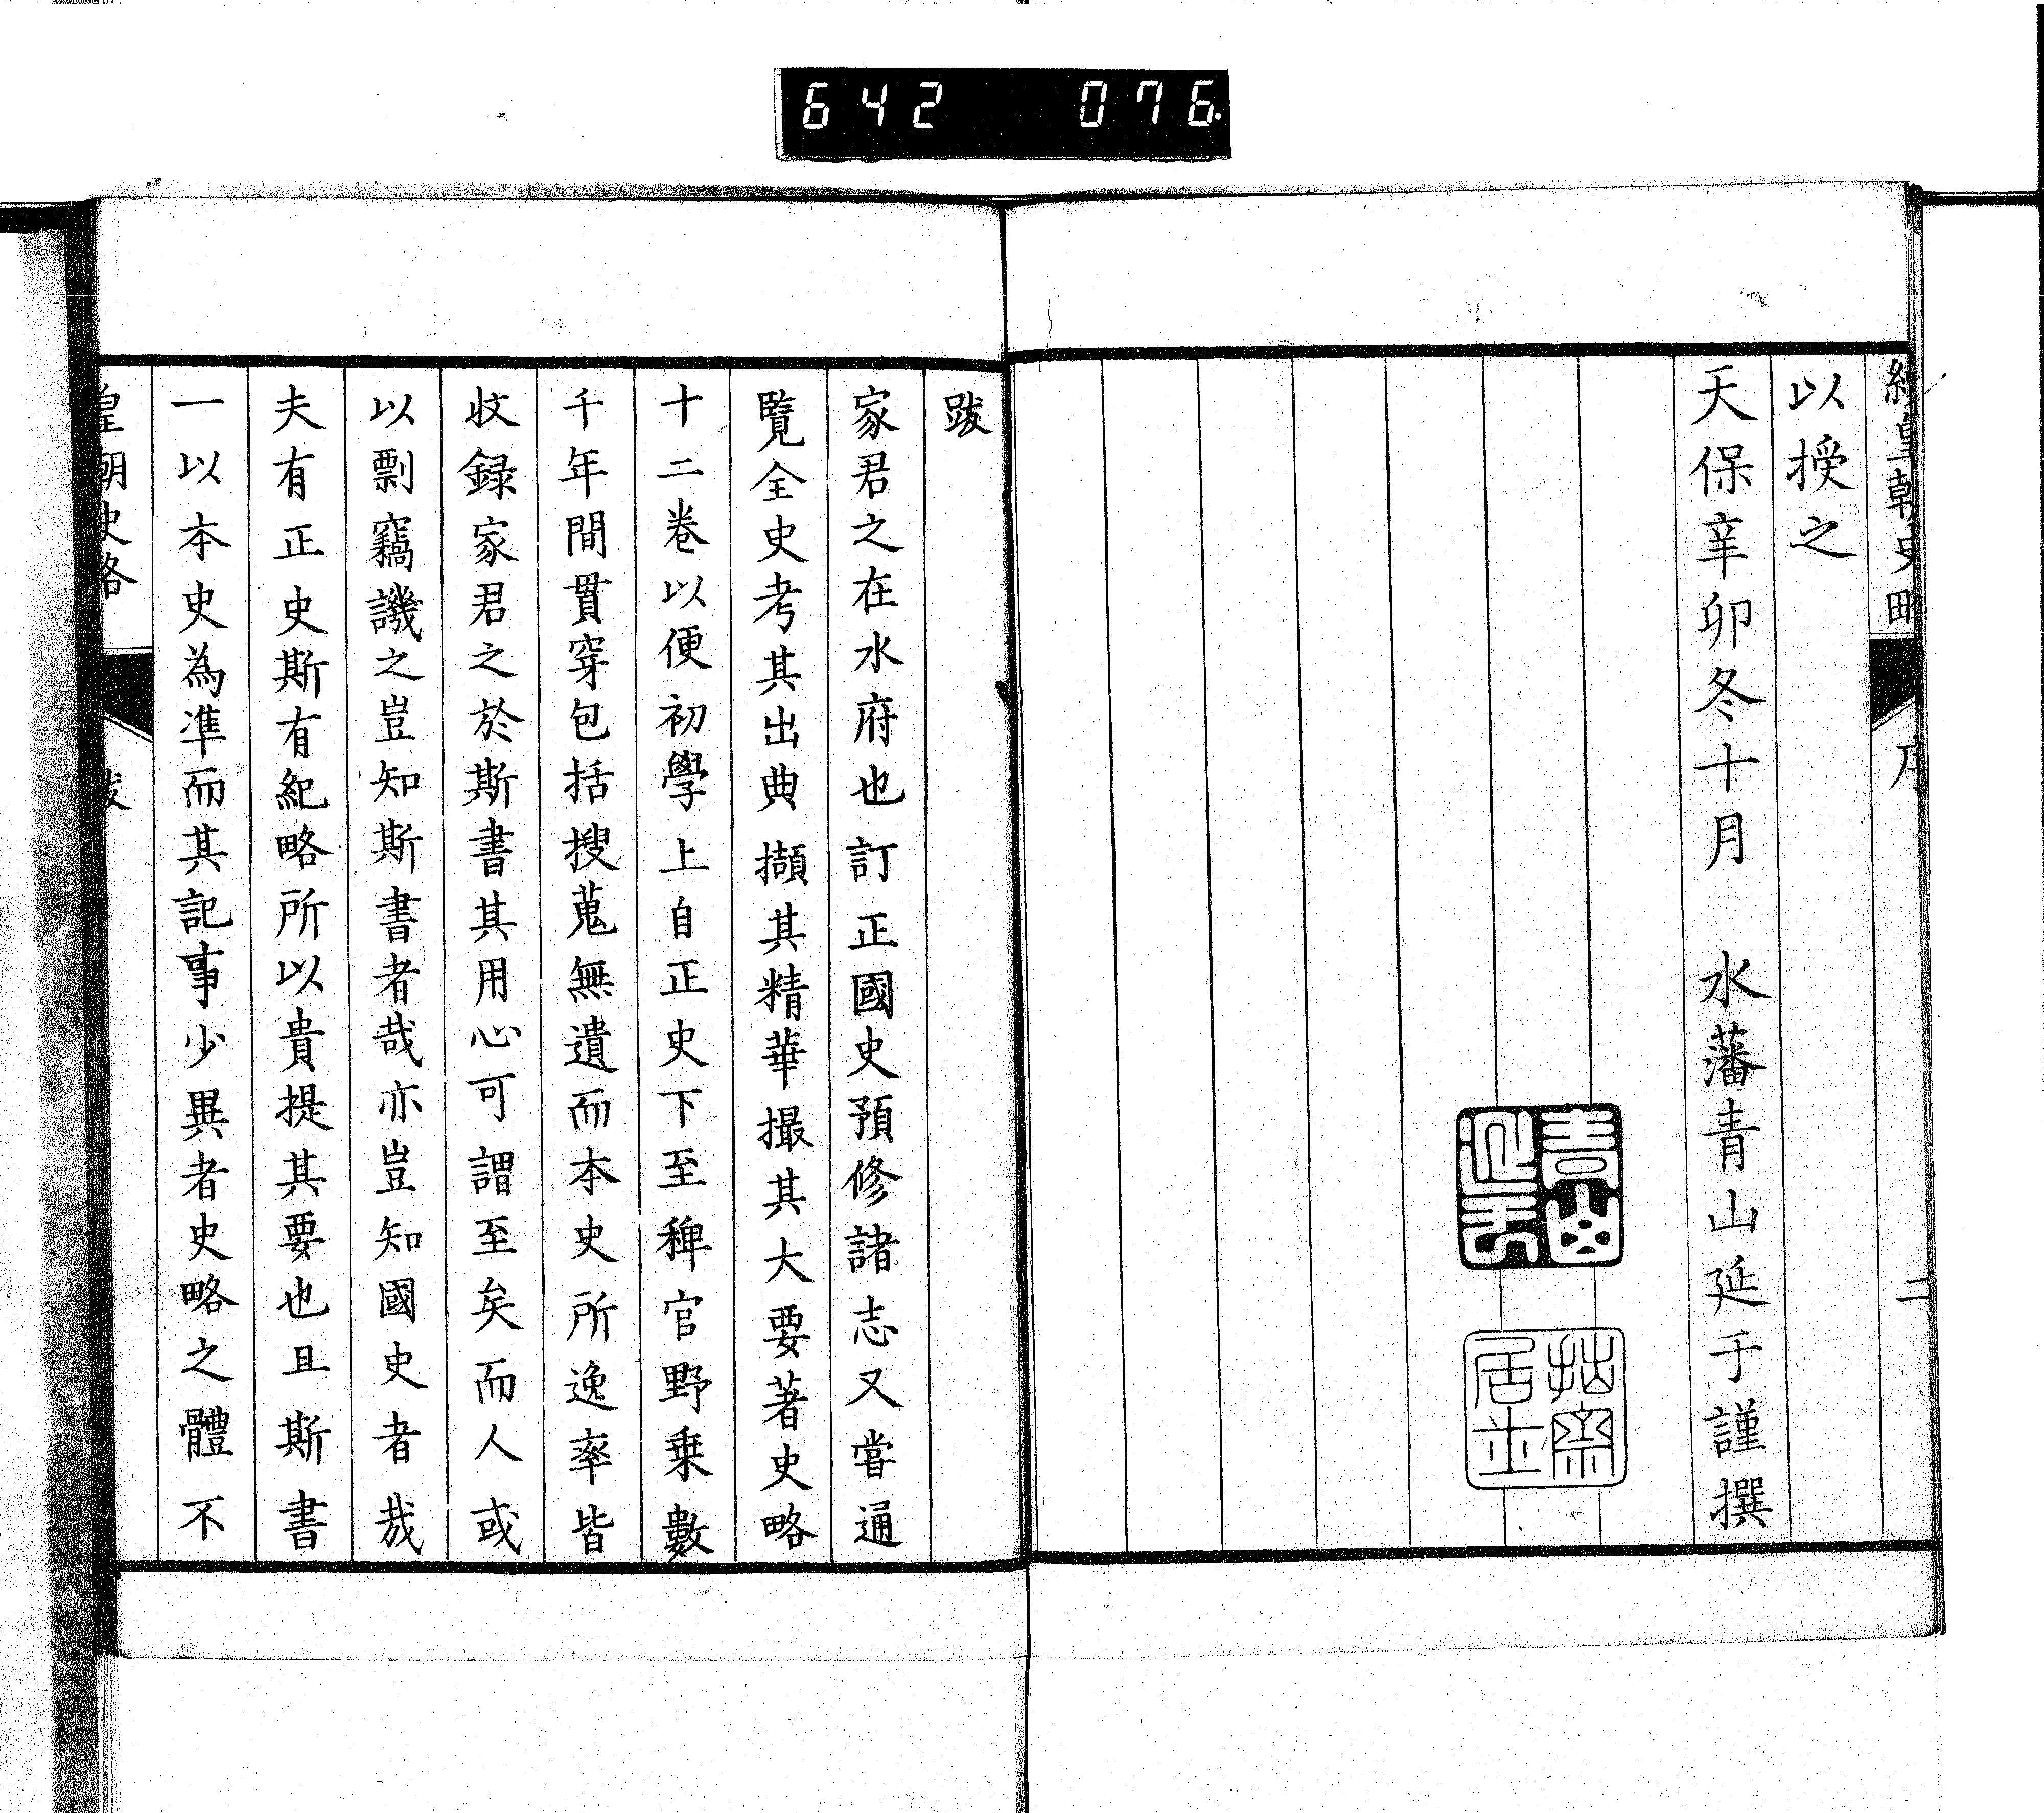 642 076
續皇朝史略 序 二
以授之
天保辛卯冬十月 水藩青山延于謹撰
青山
延于
拙齋
居士
跋
家君之在水府也訂正國史預修諸志又嘗通
覽全史考其出典擷其精華撮其大要著史略
十二卷以便初學上自正史下至稗官野乗數
千年間貫穿包括搜蒐無遺而本史所逸率皆
收録家君之於斯書其用心可謂至矣而人或
以剽竊譏之豈知斯書者哉亦豈知國史者哉
夫有正史斯有紀略所以貴提其要也且斯書
一以本史為準而其記事少異者史略之體不
皇朝史略 跋